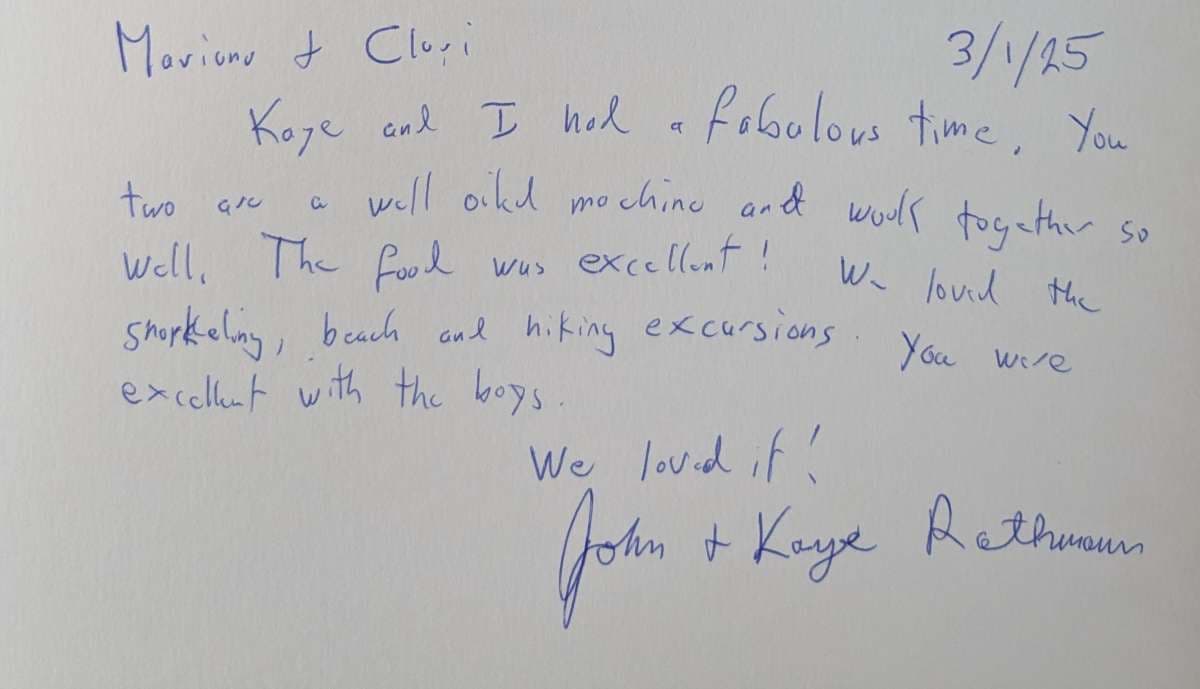 Mariano + Clari 3/1/25
Kaye and I had a fabulous time. You
two are a well oiled machine and work together so
well. The food was excellent! We loved the
snorkeling, beach and hiking excursions. You were
excellent with the boys.
We loved it!
John + Kaye Rathmann